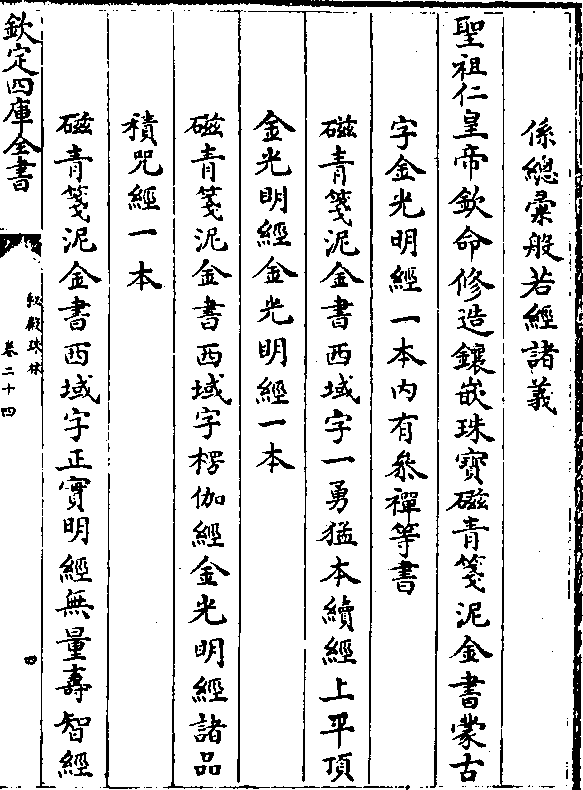 係總彙般若經諸義
聖祖仁皇帝欽命修造鑲嵌珠寶磁青箋泥金書蒙古
字金光明經一本内有叅禪等書
磁青箋泥金書西域字一勇猛本續經上平頂
金光明經金光明經一本
磁青箋泥金書西域字楞伽經金光明經諸品
積咒經一本
磁青箋泥金書西域字正實明經無量壽智經
欽定四庫全書
秘殿珠林
卷二十四
四